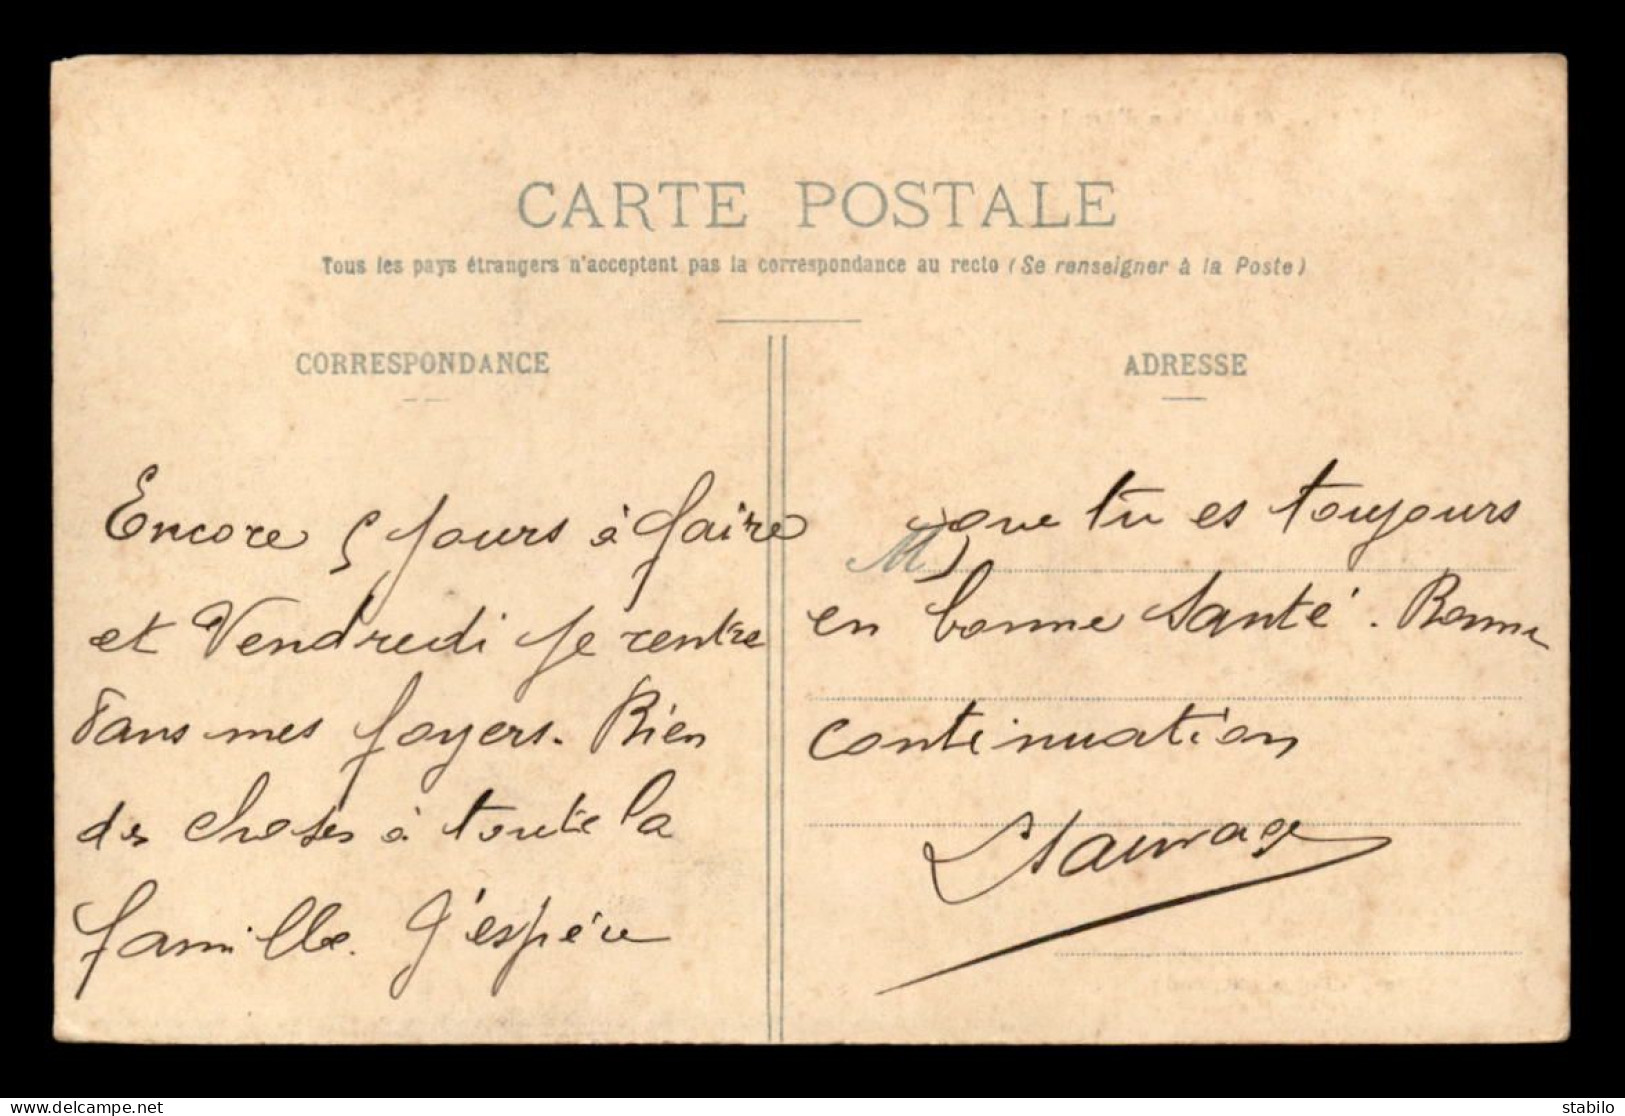 CARTE POSTALE
Tous les pays étrangers n'acceptent pas la correspondance au recto (Se renseigner à la Poste)
CORRESPONDANCE
Encore 5 jours à faire
et Vendredi je rentre
dans mes foyers. Bien
des choses à toute la
famille. J'espère
ADRESSE
M
que tu es toujours
en bonne santé. Bonne
continuation
Sauvage
stabilo